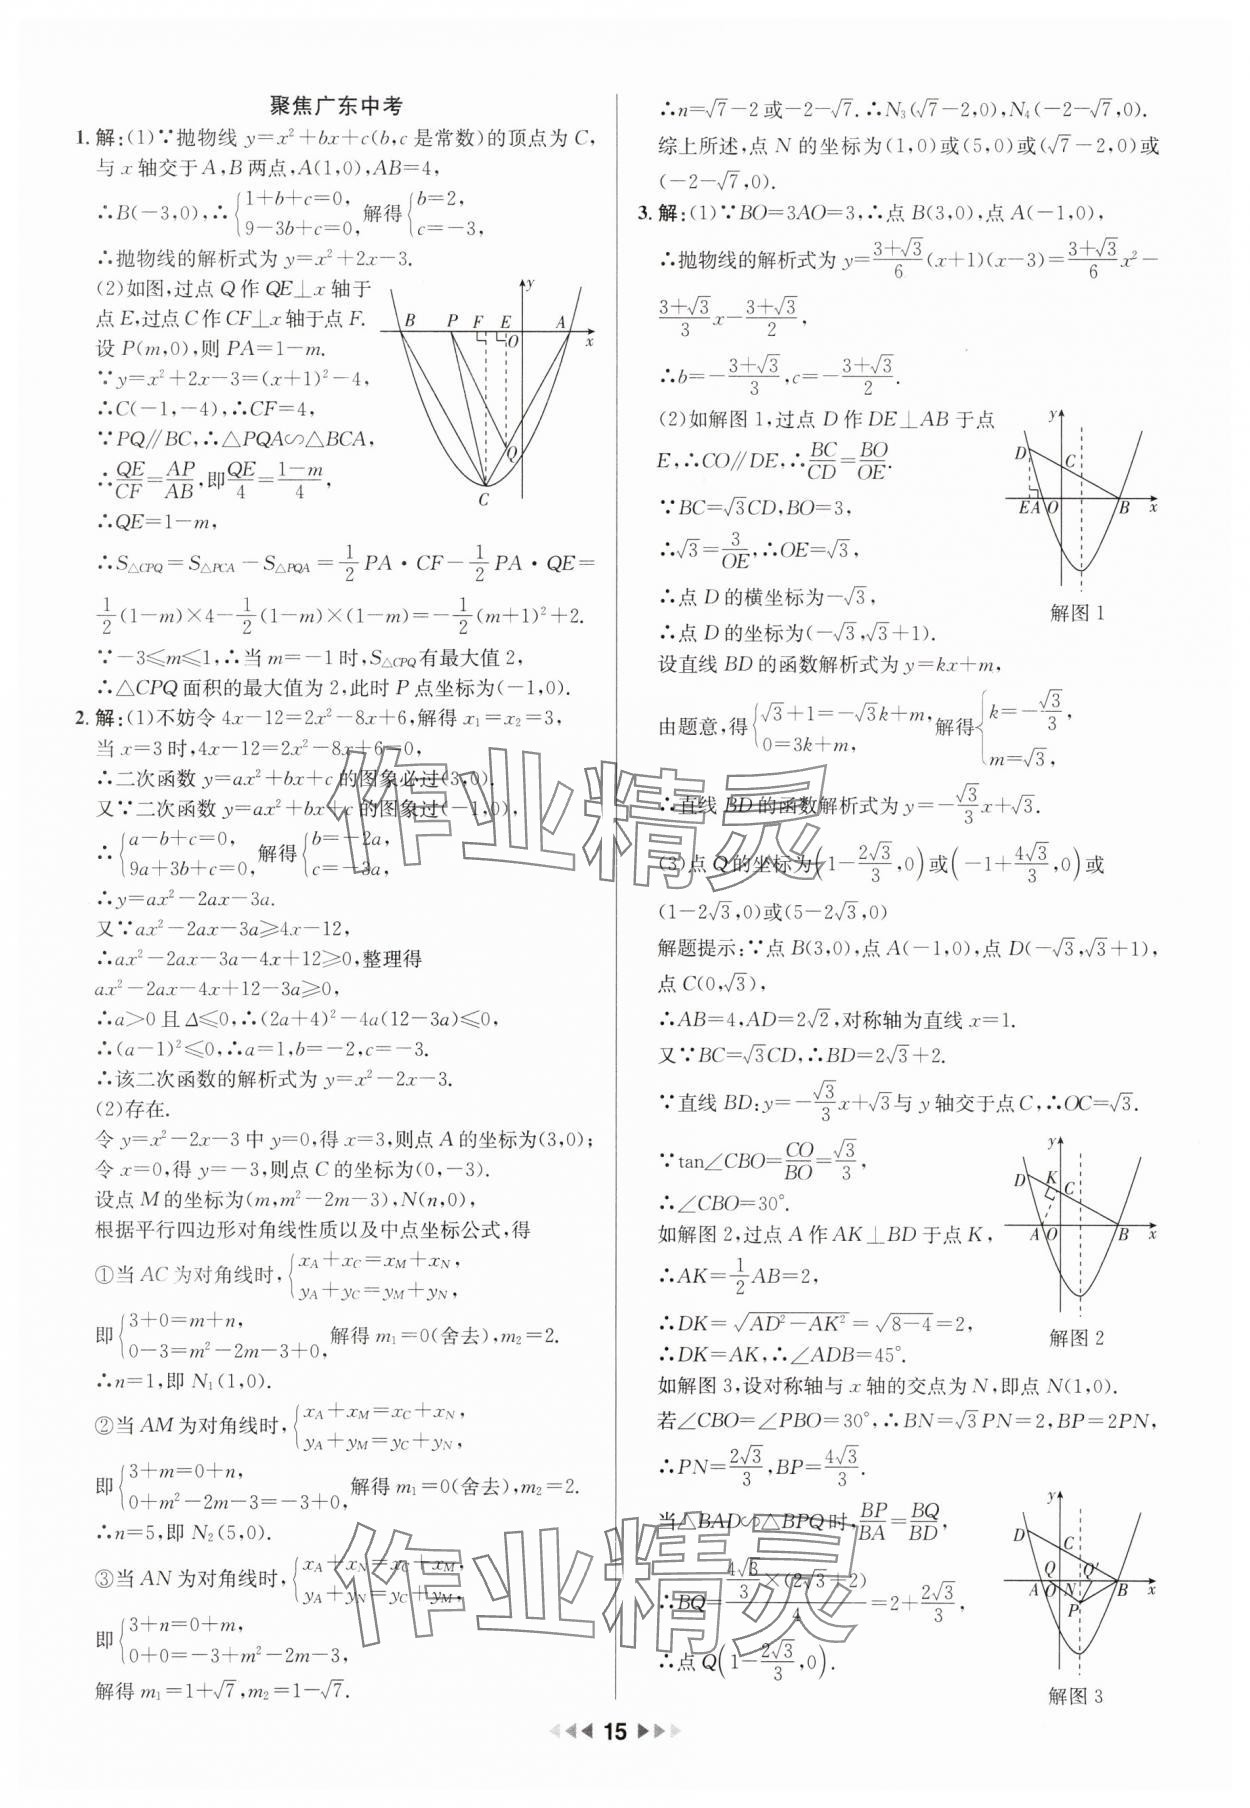 聚焦广东中考
1. 解:(1)∵抛物线 y=x²+bx+c(b,c 是常数)的顶点为 C,
与 x 轴交于 A,B 两点,A(1,0),AB=4,
∴B(-3,0),∴{1+b+c=0, 9-3b+c=0, 解得{b=2, c=-3,
∴抛物线的解析式为 y=x²+2x-3.
(2)如图,过点 Q 作 QE⊥x 轴于
点 E,过点 C 作 CF⊥x 轴于点 F.
设 P(m,0),则 PA=1-m.
∵y=x²+2x-3=(x+1)²-4,
∴C(-1,-4),∴CF=4,
∵PQ∥BC,∴△PQA∽△BCA,
∴QE/CF=AP/AB,即QE/4=(1-m)/4,
∴QE=1-m,
B P F E O A x y Q C
∴S△CPQ=S△PCA-S△PQA=1/2 PA·CF-1/2 PA·QE=
1/2(1-m)×4-1/2(1-m)×(1-m)=-1/2(m+1)²+2.
∵-3≤m≤1,∴当 m=-1 时,S△CPQ有最大值 2,
∴△CPQ 面积的最大值为 2,此时 P 点坐标为(-1,0).
2. 解:(1)不妨令 4x-12=2x²-8x+6,解得 x₁=x₂=3,
当 x=3 时,4x-12=2x²-8x+6=0,
∴二次函数 y=ax²+bx+c 的图象必过(3,0).
又∵二次函数 y=ax²+bx+c 的图象过(-1,0),
∴{a-b+c=0, 9a+3b+c=0, 解得{b=-2a, c=-3a,
∴y=ax²-2ax-3a.
又∵ax²-2ax-3a≥4x-12,
∴ax²-2ax-3a-4x+12≥0,整理得
ax²-2ax-4x+12-3a≥0,
∴a>0 且 Δ≤0,∴(2a+4)²-4a(12-3a)≤0,
∴(a-1)²≤0,∴a=1,b=-2,c=-3.
∴该二次函数的解析式为 y=x²-2x-3.
(2)存在.
令 y=x²-2x-3 中 y=0,得 x=3,则点 A 的坐标为(3,0);
令 x=0,得 y=-3,则点 C 的坐标为(0,-3).
设点 M 的坐标为(m,m²-2m-3),N(n,0),
根据平行四边形对角线性质以及中点坐标公式,得
①当 AC 为对角线时,{x_A+x_C=x_M+x_N, y_A+y_C=y_M+y_N,
即{3+0=m+n, 0-3=m²-2m-3+0, 解得 m₁=0(舍去),m₂=2.
∴n=1,即 N₁(1,0).
②当 AM 为对角线时,{x_A+x_M=x_C+x_N, y_A+y_M=y_C+y_N,
即{3+m=0+n, 0+m²-2m-3=-3+0, 解得 m₁=0(舍去),m₂=2.
∴n=5,即 N₂(5,0).
③当 AN 为对角线时,{x_A+x_N=x_C+x_M, y_A+y_N=y_C+y_M,
即{3+n=0+m, 0+0=-3+m²-2m-3,
解得 m₁=1+√7,m₂=1-√7.
∴n=√7-2 或-2-√7. ∴N₃(√7-2,0),N₄(-2-√7,0).
综上所述,点 N 的坐标为(1,0)或(5,0)或(√7-2,0)或
(-2-√7,0).
3. 解:(1)∵BO=3AO=3,∴点 B(3,0),点 A(-1,0),
∴抛物线的解析式为 y=(3+√3)/6(x+1)(x-3)=(3+√3)/6 x²-
(3+√3)/3 x-(3+√3)/2,
∴b=-(3+√3)/3,c=-(3+√3)/2.
(2)如解图 1,过点 D 作 DE⊥AB 于点
E,∴CO∥DE,∴BC/CD=BO/OE.
∵BC=√3CD,BO=3,
∴√3=3/OE,∴OE=√3,
∴点 D 的横坐标为-√3,
∴点 D 的坐标为(-√3,√3+1).
y D C E A O B x
解图 1
设直线 BD 的函数解析式为 y=kx+m,
由题意,得{√3+1=-√3k+m, 0=3k+m, 解得{k=-√3/3, m=√3,
∴直线 BD 的函数解析式为 y=-√3/3 x+√3.
(3)点 Q 的坐标为(1-2√3/3,0)或(-1+4√3/3,0)或
(1-2√3,0)或(5-2√3,0)
解题提示:∵点 B(3,0),点 A(-1,0),点 D(-√3,√3+1),
点 C(0,√3),
∴AB=4,AD=2√2,对称轴为直线 x=1.
又∵BC=√3CD,∴BD=2√3+2.
∵直线 BD:y=-√3/3 x+√3与 y 轴交于点 C,∴OC=√3.
∵tan∠CBO=CO/BO=√3/3,
∴∠CBO=30°.
如解图 2,过点 A 作 AK⊥BD 于点 K,
∴AK=1/2 AB=2,
∴DK=√(AD²-AK²)=√(8-4)=2,
∴DK=AK,∴∠ADB=45°.
y D K C A O B x
解图 2
如解图 3,设对称轴与 x 轴的交点为 N,即点 N(1,0).
若∠CBO=∠PBO=30°,∴BN=√3PN=2,BP=2PN,
∴PN=2√3/3,BP=4√3/3.
当△BAD∽△BPQ 时,BP/BA=BQ/BD,
∴BQ=(4√3/3×(2√3+2))/4=2+2√3/3,
∴点 Q(1-2√3/3,0).
y D C Q Q′ A O N B x P
解图 3
15
作业精灵
作业精灵